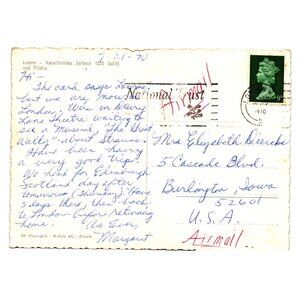 Luzern - Kapellbrücke, (erbaut 1333 built)
und Pilatus
7-21-70
Hi -
The card says Luzerne
but we are now in
London. We're in Drury
Lane Theatre waiting to
see a musical, "The Great
Waltz" - about Strauss.
Have been having
a very good trip!
We head for Edinburgh
Scotland day after
tomorrow (Thursday). Have
5 days there, then back
to London before returning
home. As Ever,
Margaret
National Trust
Airmail
Mrs Elizabeth Diercks
5 Cascade Blvd.
Burlington, Iowa
52601
U.S.A.
Airmail